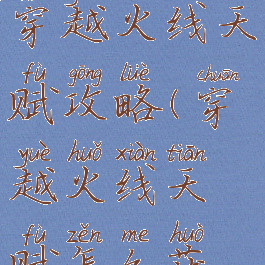 穿越火线天
fù gōng lüè chuān
赋攻略(穿
yuè huǒ xiàn tiān
越火线天
fù zěn me huò
赋怎么获